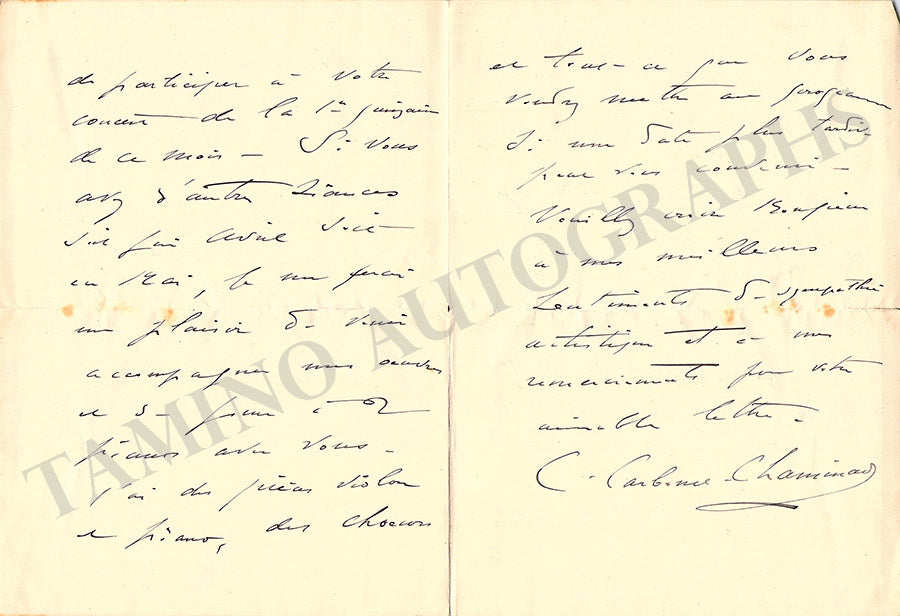 de participer à votre
concert de la 1re quinzaine
de ce mois — Si vous
avez d'autres séances
soit fin Avril soit
en Mai, je me ferai
un plaisir de venir
accompagner mes œuvres
et de jouer à 2
pianos avec vous —
J'ai des pièces violon
et piano, des chœurs
et tout ce que vous
voudrez mettre au programme
si une date plus tardive
peut vous convenir —
Veuillez croire Monsieur
à mes meilleurs
sentiments de sympathie
artistique et à mes
remerciements pour votre
aimable lettre —
C. Carbonel-Chaminade
TAMINO AUTOGRAPHS